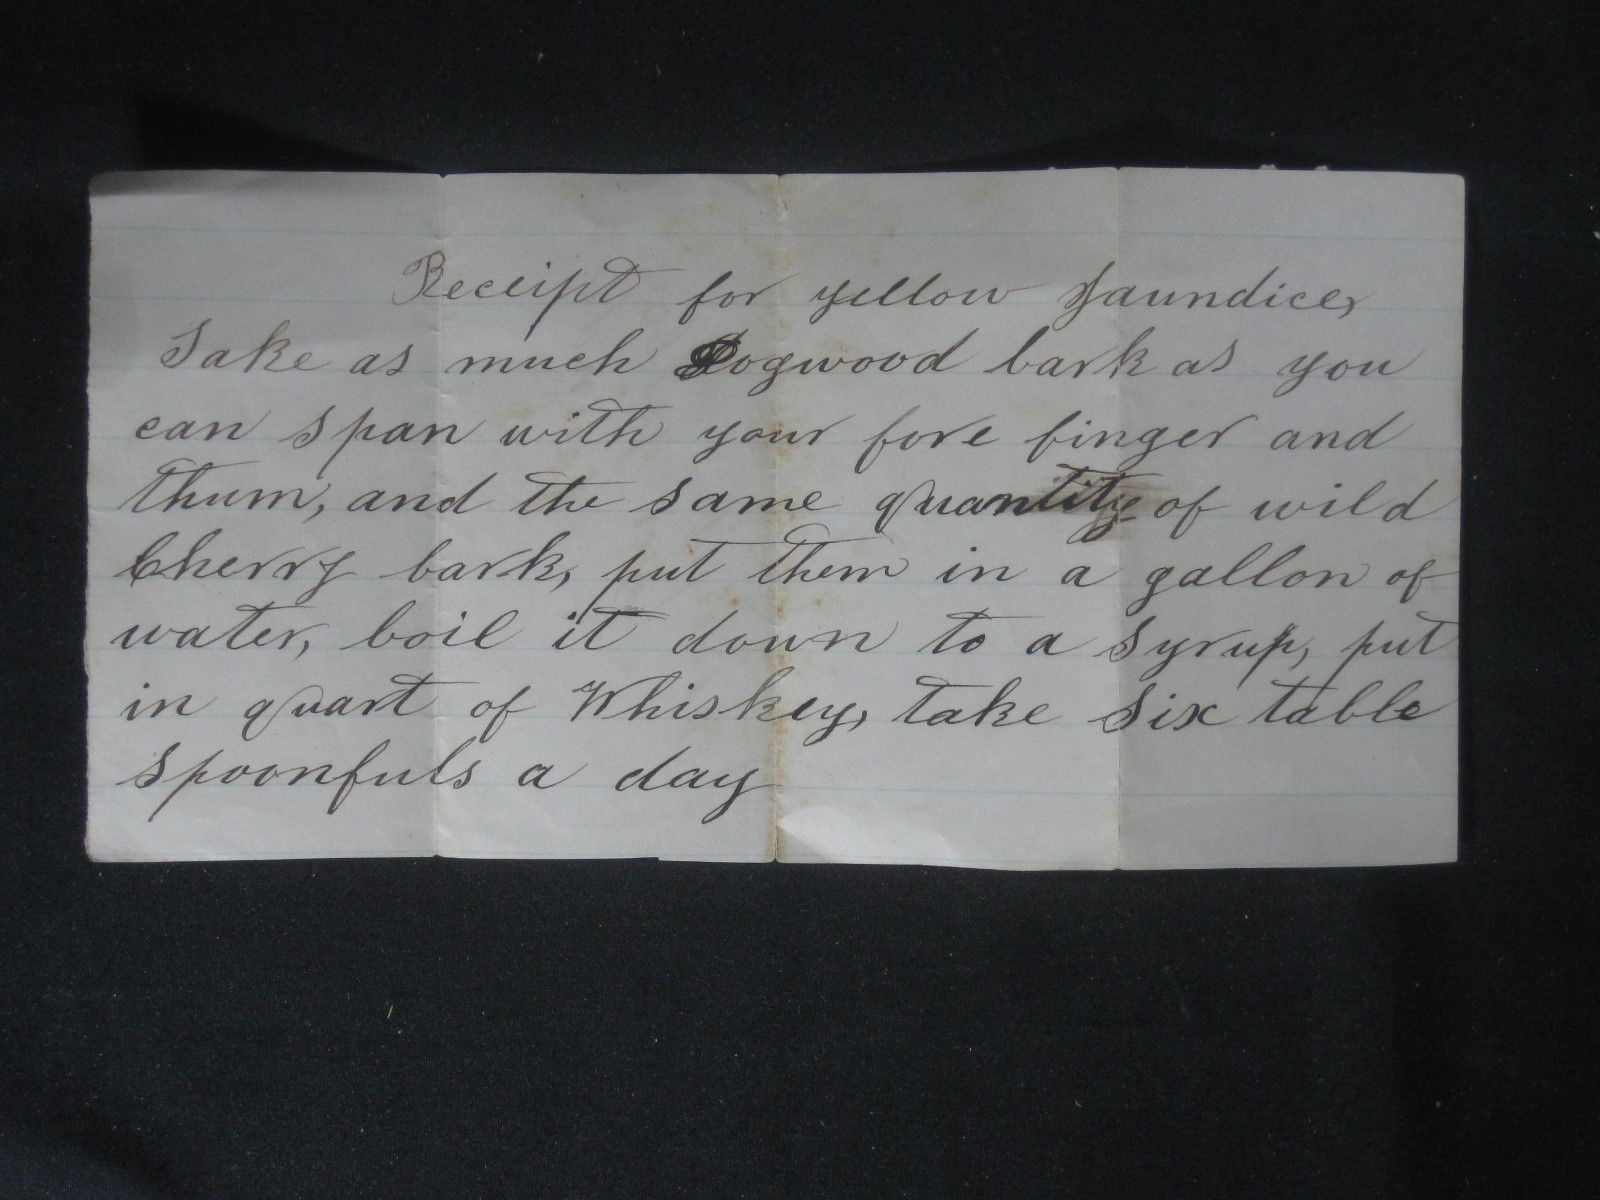 Receipt for yellow Jaundice,
Take as much Dogwood bark as you
can span with your fore finger and
thum, and the same quantity of wild
Cherry bark, put them in a gallon of
water, boil it down to a syrup, put
in quart of Whiskey, take six table
spoonfuls a day